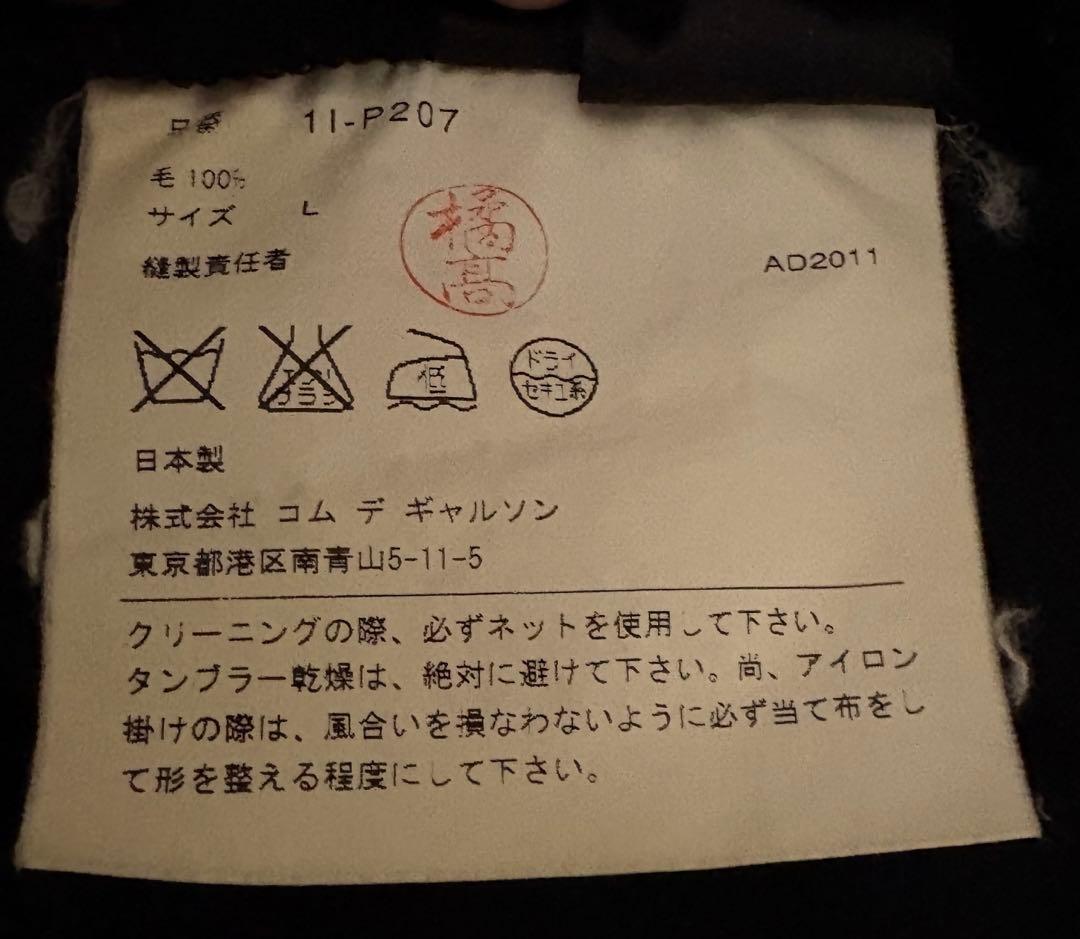 品番 1I-P207
毛 100%
サイズ L
縫製責任者
橘高
AD2011
エンソ
サラシ
低
ドライ
セキユ系
日本製
株式会社 コム デ ギャルソン
東京都港区南青山5-11-5
クリーニングの際、必ずネットを使用して下さい。
タンブラー乾燥は、絶対に避けて下さい。尚、アイロン
掛けの際は、風合いを損なわないように必ず当て布をし
て形を整える程度にして下さい。